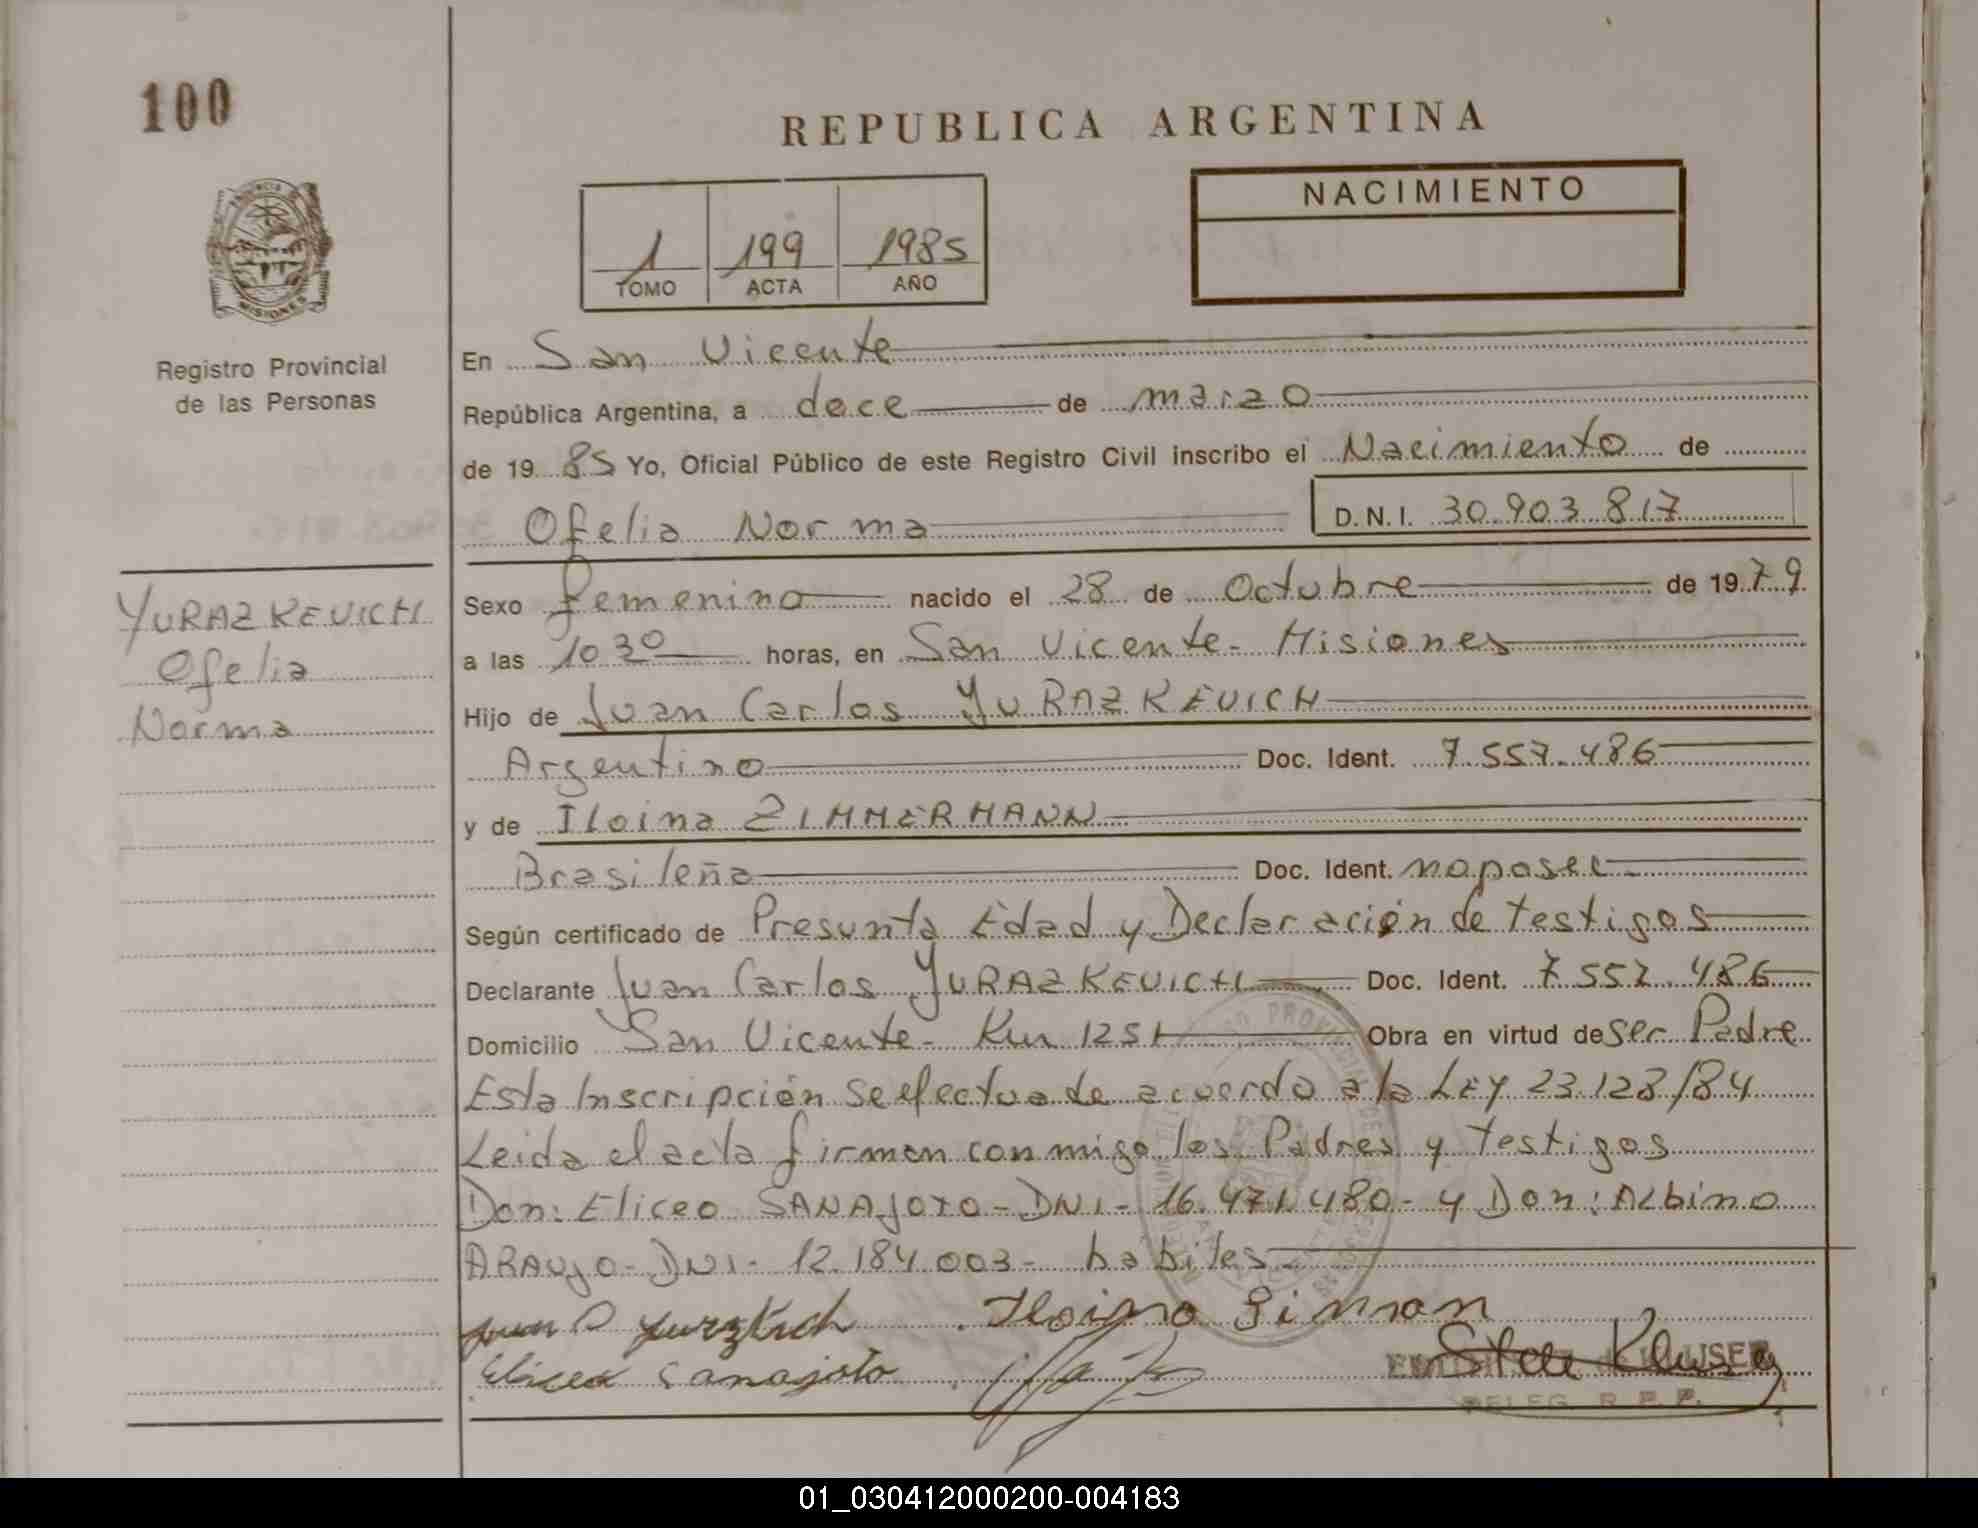 100
REPUBLICA ARGENTINA
NACIMIENTO
1 199 1985
TOMO ACTA AÑO
MISIONES
Registro Provincial
de las Personas
YURAZKEVICH
Ofelia
Norma
En San Vicente
República Argentina, a doce de marzo
de 19 85 Yo, Oficial Público de este Registro Civil inscribo el Nacimiento de
Ofelia Norma D.N.I. 30.903.817
Sexo femenino nacido el 28 de Octubre de 1979.
a las 10 30 horas, en San Vicente - Misiones
Hijo de Juan Carlos YURAZKEVICH
Argentino Doc. Ident. 7.557.486
y de Iloina ZIMMERMANN
Brasileña Doc. Ident. no posee
Según certificado de Presunta Edad y Declaración de testigos
Declarante Juan Carlos YURAZKEVICH Doc. Ident. 7.557.486
Domicilio San Vicente - Km 1251 Obra en virtud de ser Padre
Esta Inscripción se efectua de acuerdo a la LEY 23.128/84
Leida el acta firman conmigo los Padres y testigos
Don: Eliceo SANAJOTO - DNI - 16.471.480 - y Don: Albino
ARAUJO - DNI - 12.184.003 - habiles
Iloino Simman
Eliceo Sanajoto
DELEG. R. P. P.
01_030412000200-004183